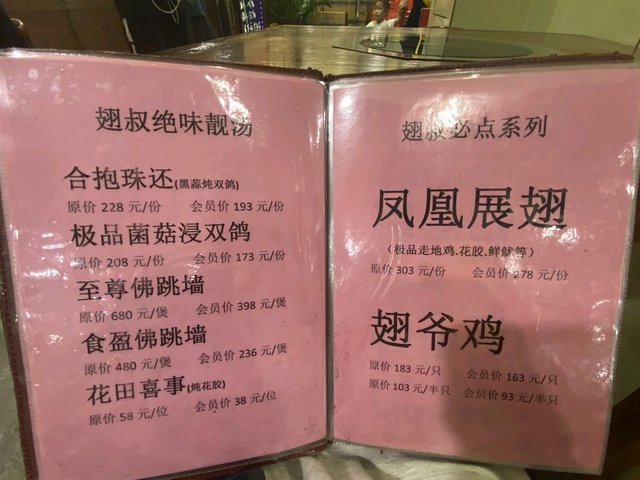 翅叔绝味靓汤
合抱珠还(黑蒜炖双鸽)
原价 228 元/份 会员价 193 元/份
极品菌菇浸双鸽
原价 208 元/份 会员价 173 元/份
至尊佛跳墙
原价 680 元/煲 会员价 398 元/煲
食盈佛跳墙
原价 480 元/煲 会员价 236 元/煲
花田喜事(炖花胶)
原价 58 元/位 会员价 38 元/位
翅叔必点系列
凤凰展翅
(极品走地鸡.花胶.鲜鱿等)
原价 303 元/份 会员价 278 元/份
翅爷鸡
原价 183 元/只 会员价 163 元/只
原价 103 元/半只 会员价 93 元/半只